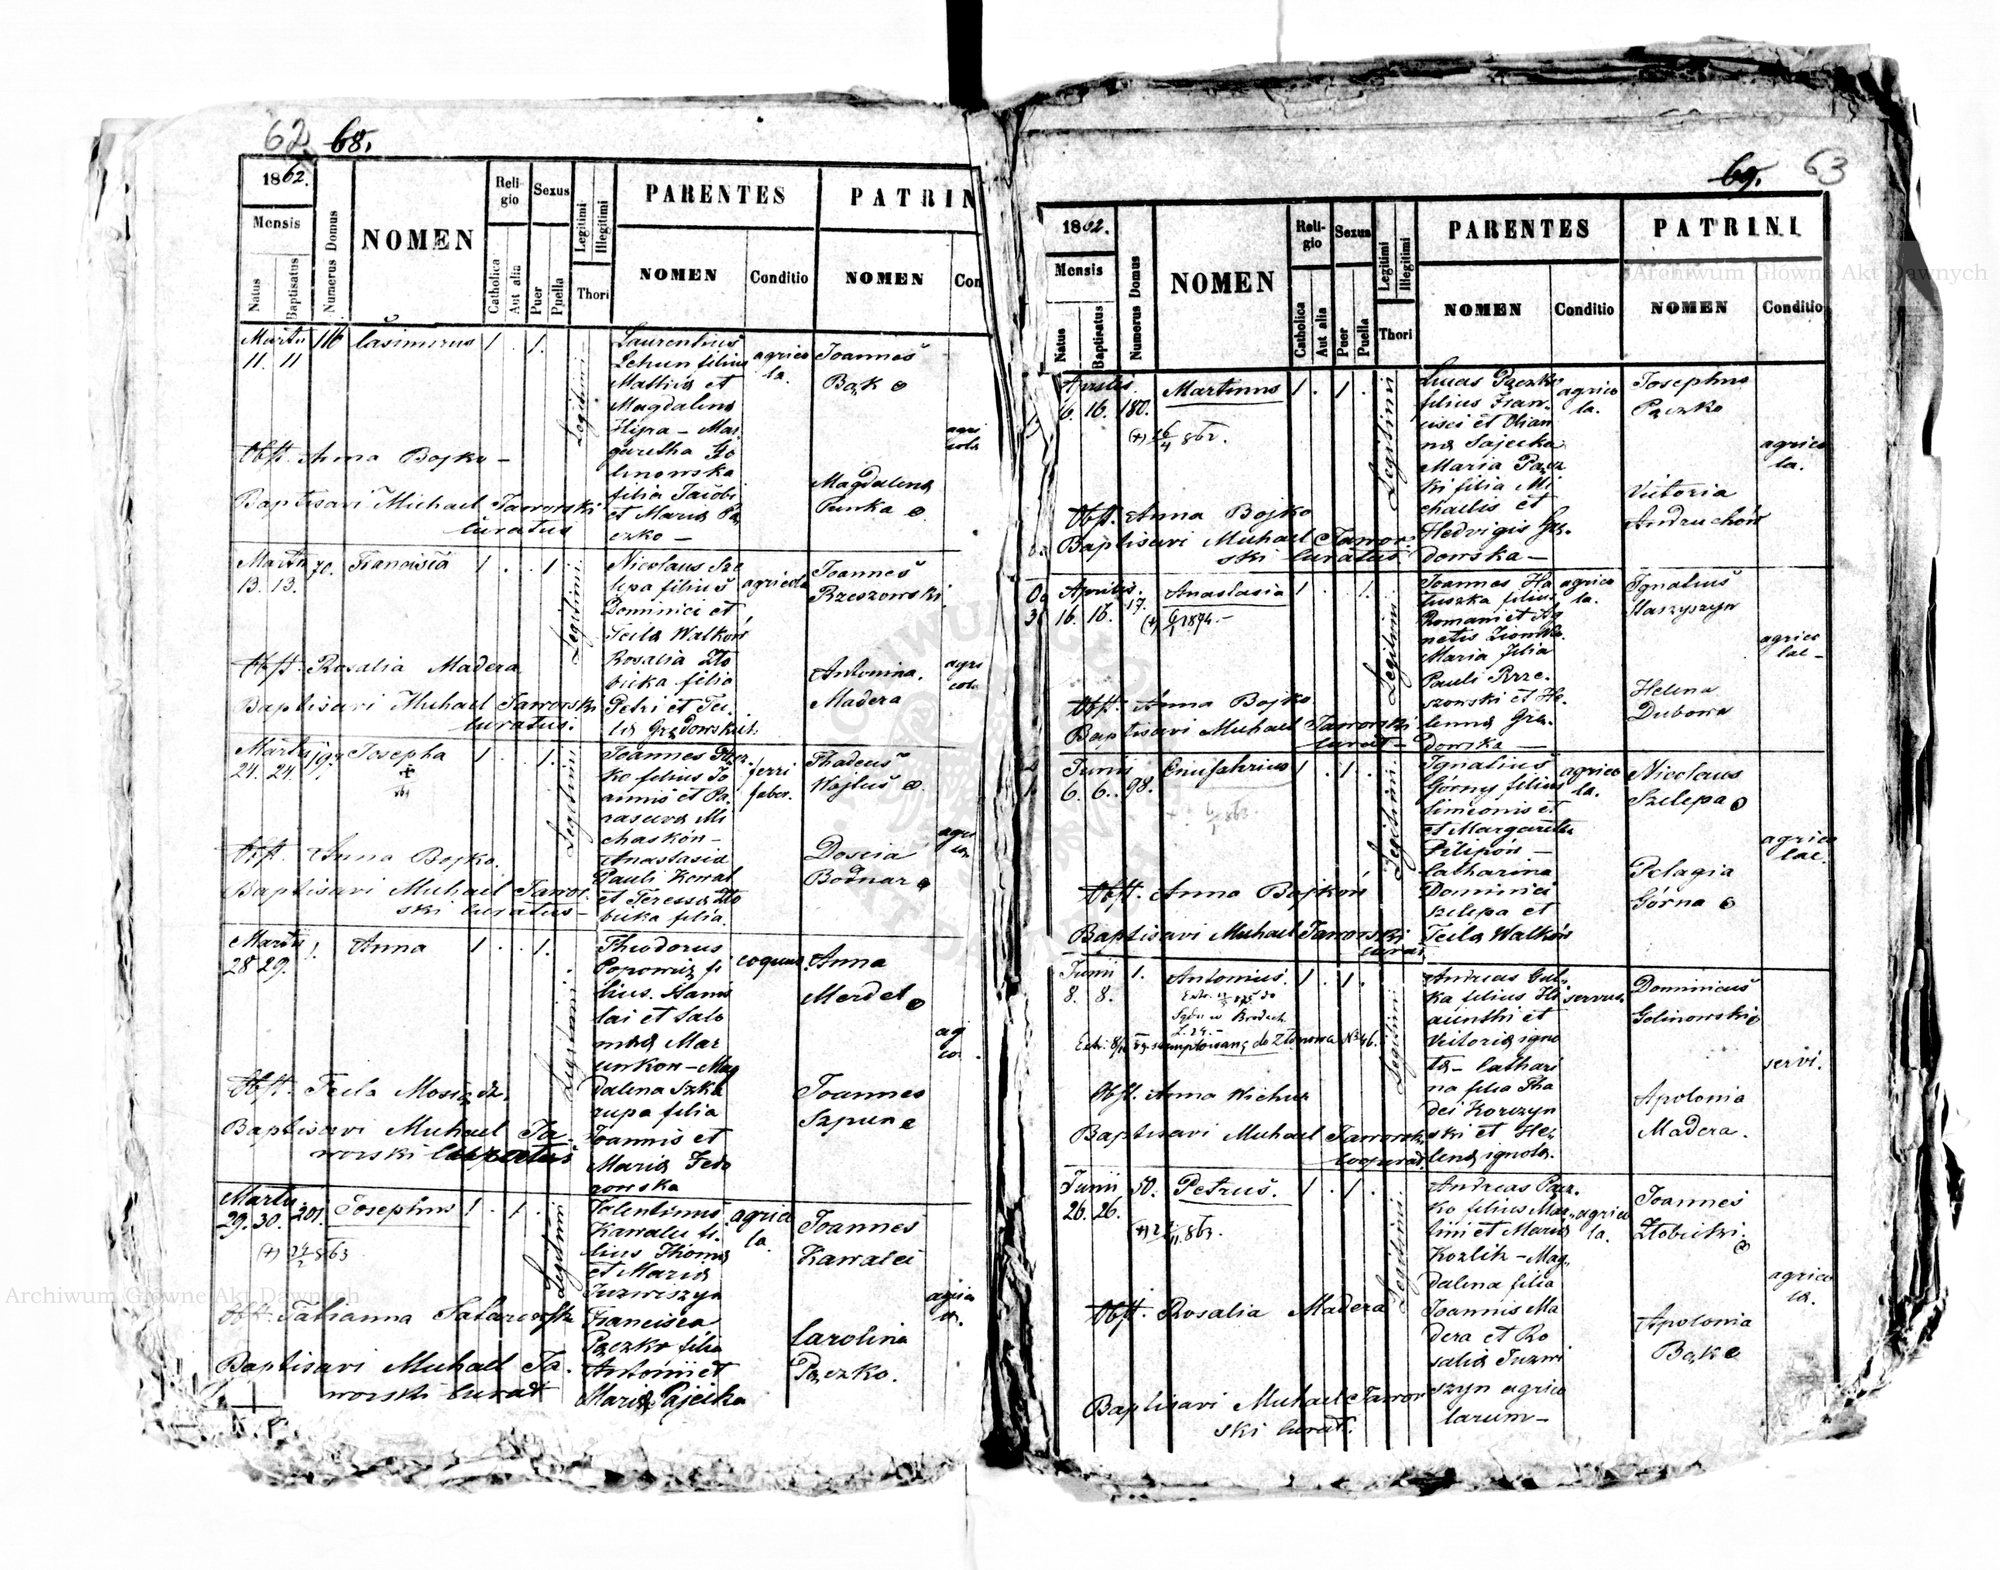 62 68.
1862.
Mensis
Natus
Baptisatus
Numerus Domus
NOMEN
Reli-
gio
Catholica
Aut alia
Sexus
Puer
Puella
Legitimi
Illegitimi
Thori
PARENTES
NOMEN
Conditio
PATRIN
NOMEN
Con
Martii
11. 11
116
Casimirus
1 . 1.
Legitimi
Laurentius
Lehun filius
Mathiæ et
Magdalena
Hipa – Mar
garetha Go
linowska
filia Jacobi
et Maria Pą
czko –
agrico
la.
Joannes
Bąk
Magdalena
Punka
agri
cola
Obst. Anna Bojko –
Baptisavi Michael Jaworski
curatus
Martii
13. 13.
70.
Francisca
1 . . 1
Legitimi
Nicolaus Sze
lepa filius
Dominici et
Tecla Walkoń
Rosalia Zło
bicka filia
Petri et Tec
la Grędowskich
agricola
Joannes
Rzeszowski.
Antonina.
Madera
agri
cola
Obst. Rosalia Madera
Baptisavi Michael Jaworski
curatus.
Martii
24. 24.
197
Josepha
1 . . 1.
Legitimi
Joannes Pącz
ko filius Jo
annis et Pa
rasceva Mi
chaskón –
Anastasia
Pauli Kowal
et Teressa Zło
bicka filia
ferri
faber.
Thadeus
Wojtuś
Doscia
Bodnar
Obst. Anna Bojko.
Baptisavi Michael Jawor
ski curatus –
Martii
28 29.
1.
Anna
1 . . 1.
Legitimi.
Theodorus
Popowicz fi
lius. Stanis
lai et Salo
mea Mar
unkon – Mag
dalena Szkla
rupa filia
Joannis et
Maria Fedo
rowska
coquus
Anna
Merdel
Joannes
Szpun
Obst. Tecla Mosiądz.
Baptisavi Michael Ja
worski
Martii
29. 30.
201.
Josephus
1 . 1 .
(+) 24/2 863
Legitimi
Valentinus
Kawalec fi
lius Thoma
et Maria
Juzwiszyn
Francisca
Pączko filia
Antonii et
Maria Pajecka
agrico
la.
Joannes
Kawalec
Carolina
Pączko.
agrico
la.
Obst. Tatianna
Baptisavi Michael Ja
worski curat
69. 63
1862.
Mensis
Natus
Baptisatus
Numerus Domus
NOMEN
Reli-
gio
Catholica
Aut alia
Sexus
Puer
Puella
Legitimi
Illegitimi
Thori
PARENTES
NOMEN
Conditio
PATRINI
NOMEN
Conditio
Aprilis.
6. 16.
180.
Martinus
1 . 1 .
(+) 26/4 862.
Legitimi
Lucas Pączko
filius Fran-
cisci et Ohan
na Sajecka
Maria Pącz
ki filia Mi
chaelis et
Hedvigis Grę-
dowska –
agrico
la.
Josephus
Pączko
Victoria
Andruchón
agrico
la.
Obst. Anna Bojko
Baptisavi Michael Jawor
ski curatus.
Aprilis.
16. 16.
17.
Anastasia
1 . . 1.
Legitimi
Joannes Ha
luszka filius
Romani et Ag
netis
Maria filia
Pauli Rze-
szowski et He
lenna Grę-
dowska –
agrico
la.
Ignatius
Haszyszyn
Helena
Dubowa
agrico
lae –
Obst. Anna Bojko
Baptisavi Michael Jaworski
curat –
Junii
6. 6.
98.
Onufahrius
1 . 1 .
Legitimi
Ignatius
Górny filius
Simeonis et
et Margareta
Pilipón –
Catharina
Dominici
Szelepa et
Tecla Walkoń
agrico
la.
Nicolaus
Szelepa
Pelagia
Górna
agrico
lae.
Obst. Anna Bojkoń
Baptisavi Michael Jaworski
curat
Junii
8. 8.
1.
Antonius.
1 . 1 .
Legitimi
Andreas Gul-
ka filius Hi
acinthi et
Victoria igno
ta – Cathari
na filia Tha
dei Korczyn
ski et He-
lena ignota.
servus
Dominicus
Golinowski
Apolonia
Madera.
servi.
Obst. Anna Wichur
Baptisavi Michael Jaworski
cooperat.
Junii
26. 26.
50.
Petrus.
1 . 1 .
Legitimi
Andreas Pącz-
ko filius Mar-
tini et Maria
Kozlik – Mag-
dalena filia
Joannis Ma
dera et Ro
salia Juzwi
szyn agrico
larum –
agrico
la.
Joannes
Złobicki.
Apolonia
Bąk
agrico
la.
Obst. Rosalia Madera
Baptisavi Michael Jawor
ski curat.
Archiwum Główne Akt Dawnych
Archiwum Główne Akt Dawnych